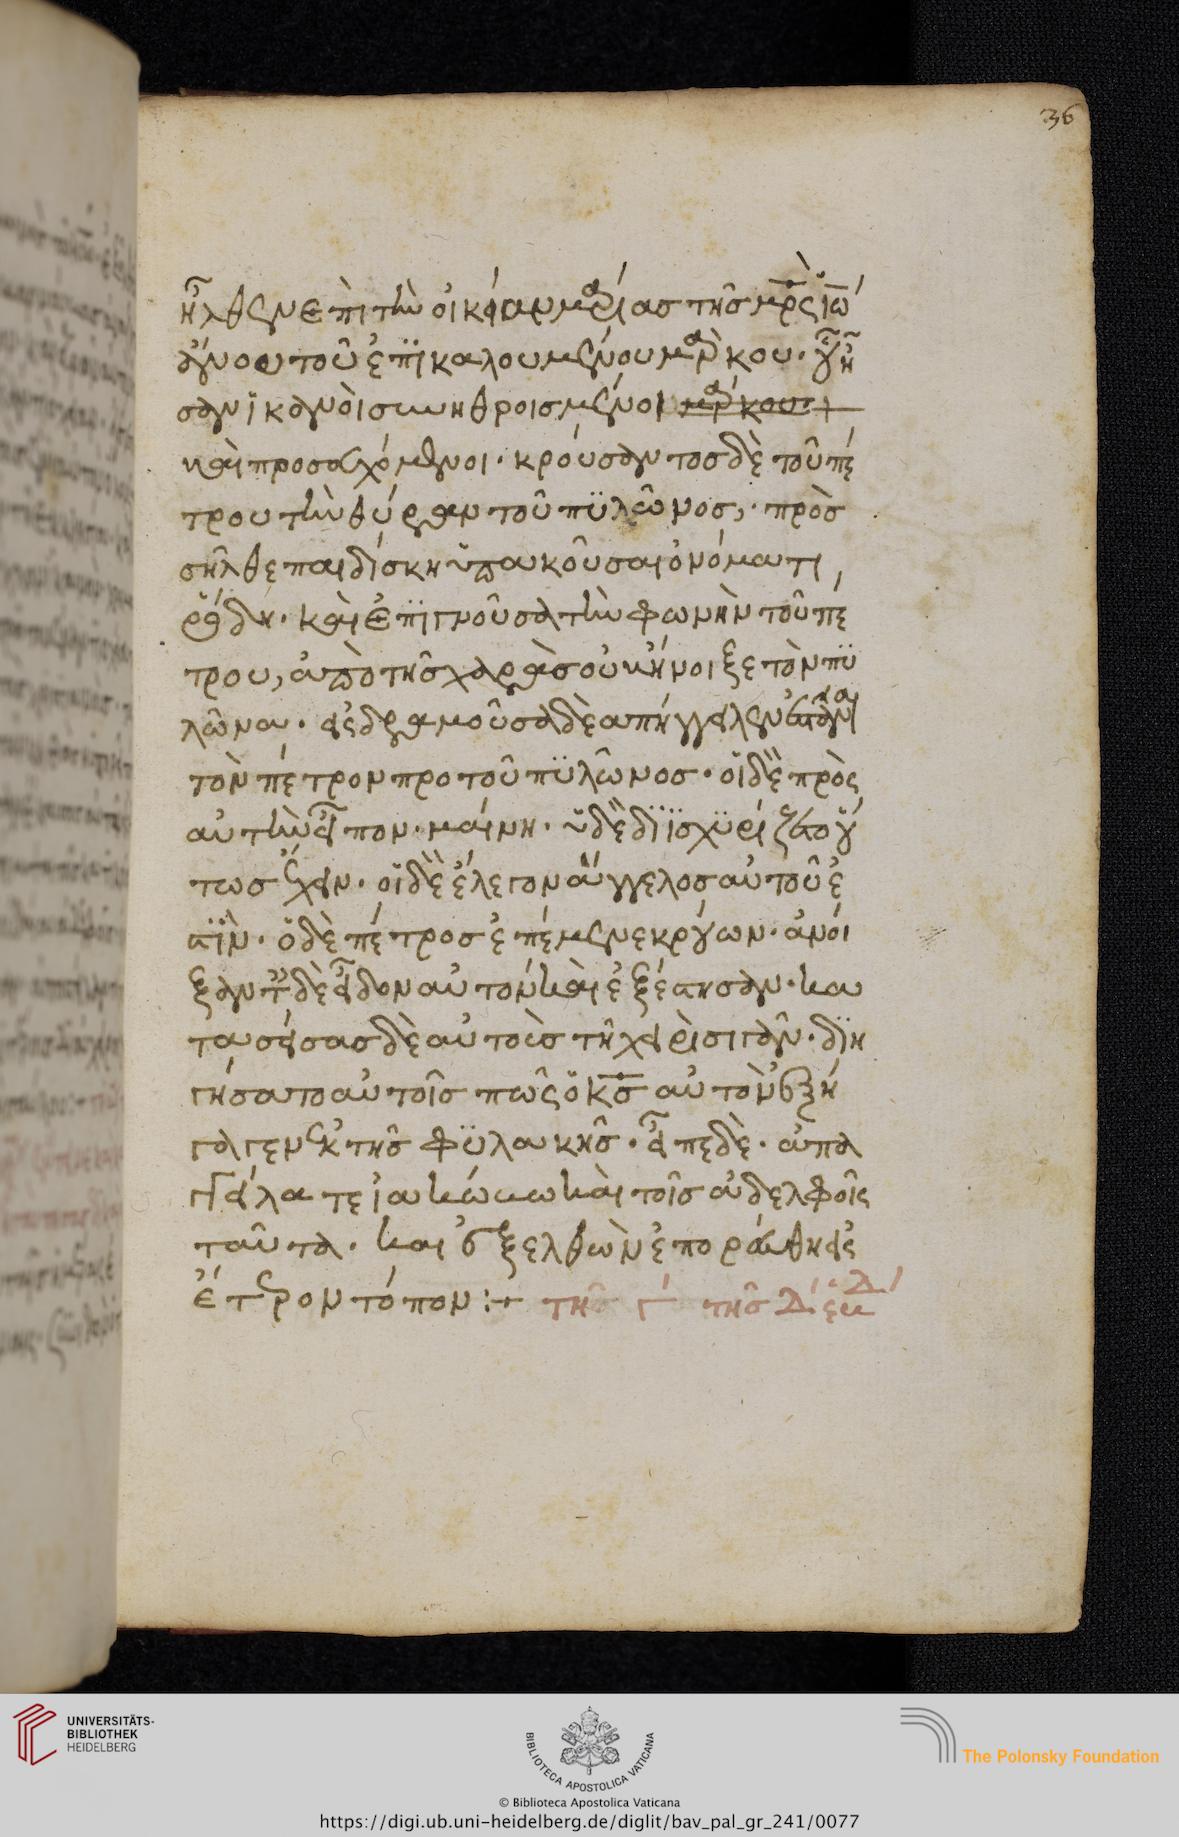 36
ἦλθεν ἐπὶ τὴν οἰκείαν μαρίας τῆς μρ̅ς ἰω̅
άννου τοῦ ἐπϊκαλουμένου μάρκου· οὗ ἦ
σαν ἱκανοὶ συνηθροισμένοι μάρκου
καὶ προσευχόμενοι· κρούσαντος δὲ τοῦ πέ
τρου τὴν θύραν τοῦ πϋλῶνος, πρὸσ
ῆλθε παιδίσκη ὑπακοῦσαι ὀνόματι
ῥόδη· καὶ ἐπϊγνοῦσα τὴν φωνὴν τοῦ πέ
τρου, ἀπὸ τῆς χαρᾶς οὐκ ἤνοιξε τὸν πϋ
λῶνα· εἰσδραμοῦσα δὲ ἀπήγγειλεν ἑστάναι
τὸν πέτρον προ τοῦ πϋλῶνος· οἱ δὲ πρὸς
αὐτὴν εἶπον· μαίνη· ἡ δὲ δϊϊσχϋρίζετο οὕ
τως ἔχειν· οἱ δὲ ἔλεγον ἄγγελος αὐτοῦ ἐ
στϊν· ὁ δὲ πέτρος ἐπέμενε κρούων· ἀνοί
ξαντες δὲ εἶδον αὐτόν καὶ ἐξέστησαν· κα
τασείσας δὲ αὐτοῖς τῆ χειρὶ σιγᾶν· δϊη
γήσατο αὐτοῖς πῶς ὁ κς̅ αὐτὸν ἐξή
γαγεν ἐκ τῆς φϋλακῆς· εἶπε δὲ· ἀπα
γγείλατε ἰακώβω καὶ τοῖς ἀδελφοῖς
ταῦτα· καὶ ἐξελθὼν ἐπορεύθη εἰς
ἕτερον τόπον :+ τῆς γ τῆς Δ
UNIVERSITÄTS-
BIBLIOTHEK
HEIDELBERG
BIBLIOTECA APOSTOLICA VATICANA
The Polonsky Foundation
© Biblioteca Apostolica Vaticana
https://digi.ub.uni-heidelberg.de/diglit/bav_pal_gr_241/0077